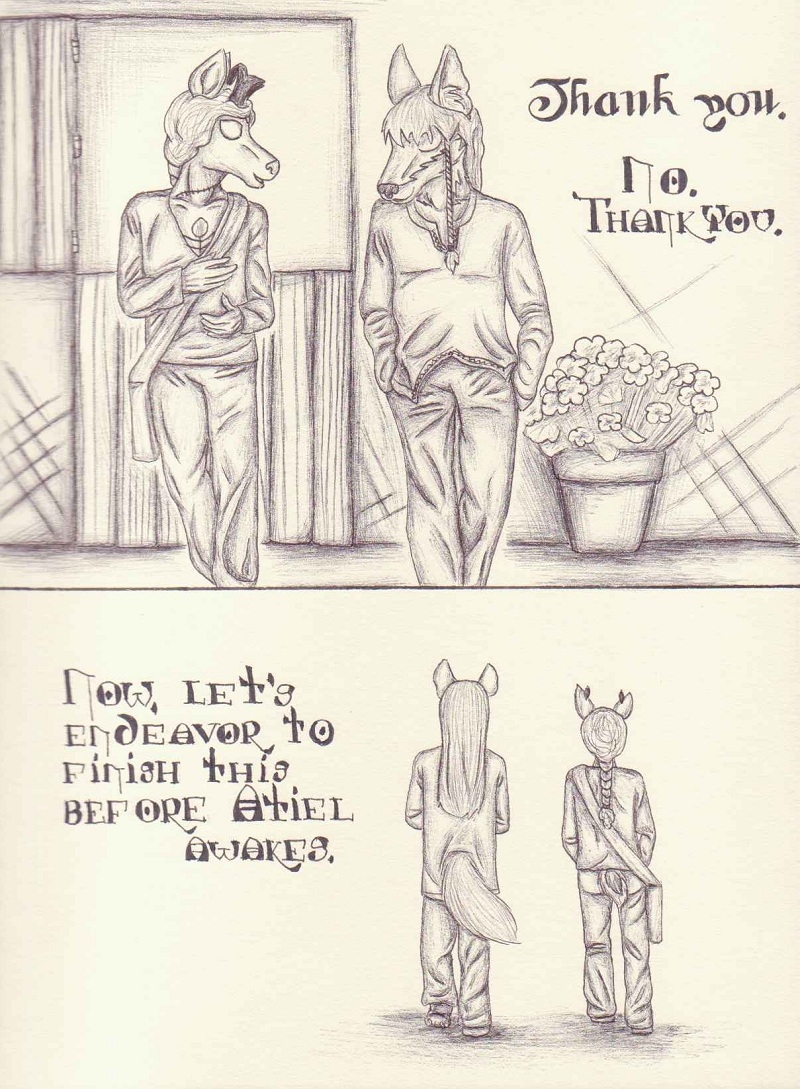 Thank you.
No.
Thank you.
Now, let's
endeavor to
finish this
before Atiel
awakes.